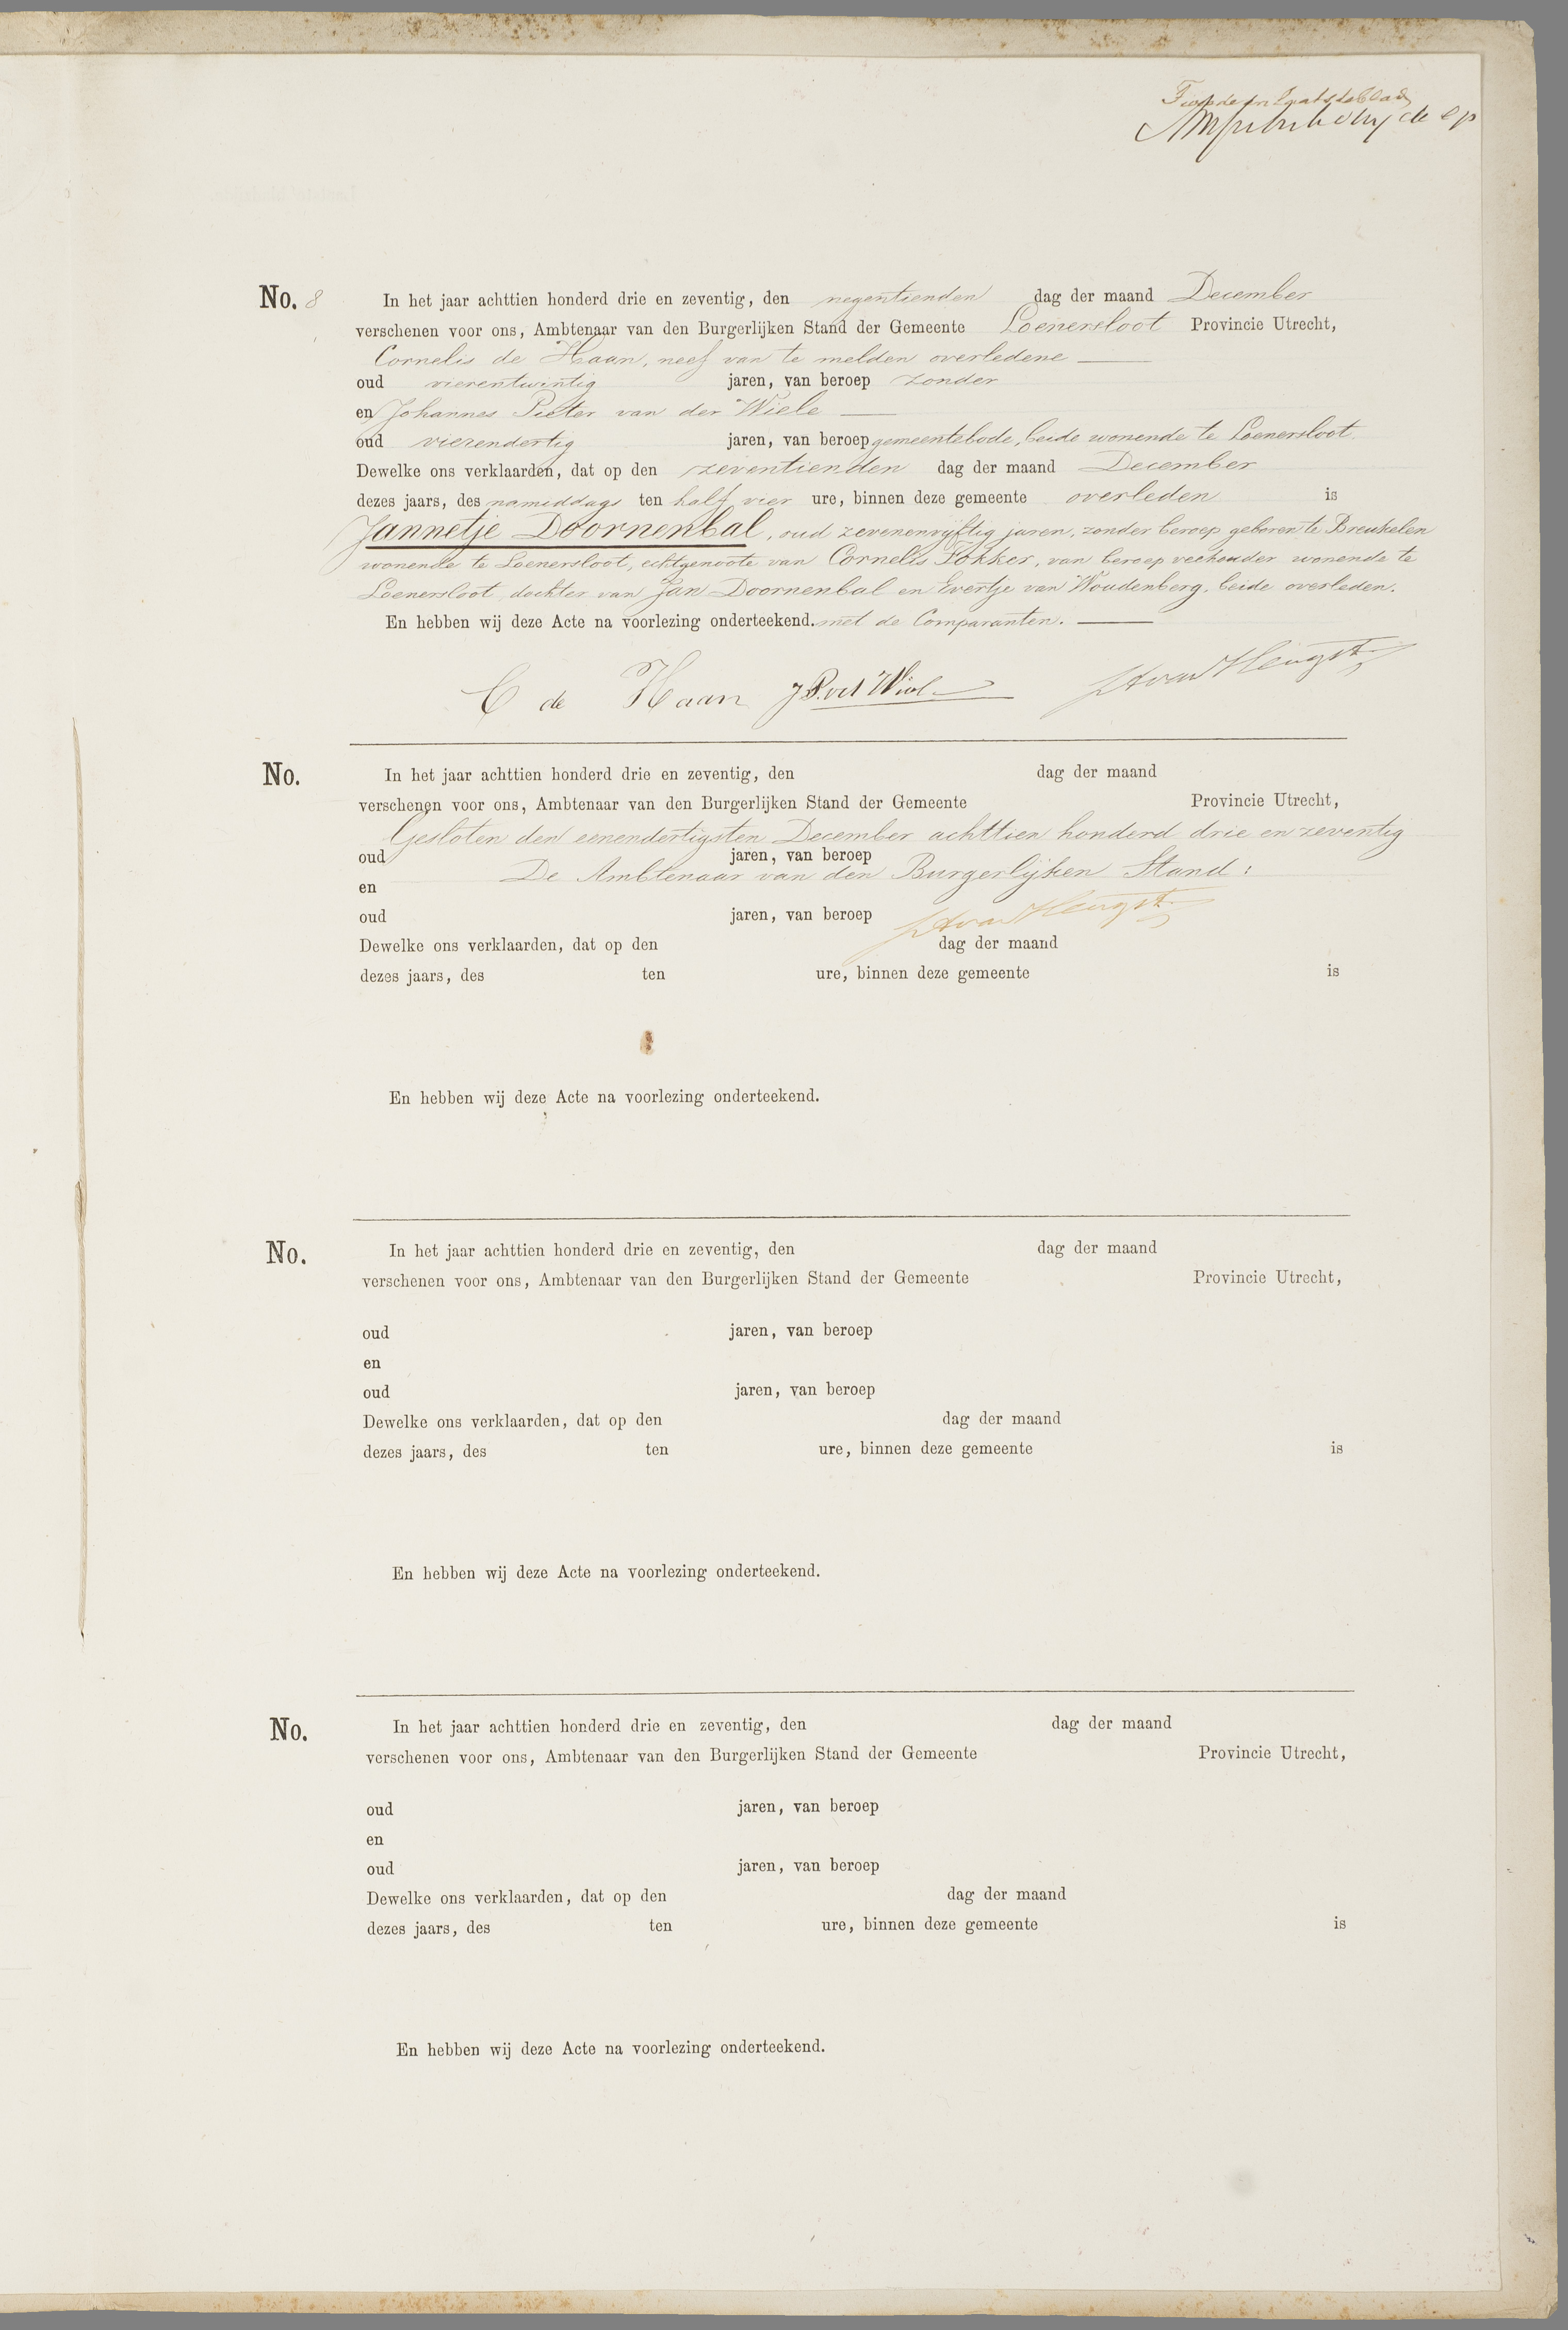 Tweede en laatste blad
No. 8 In het jaar achttien honderd drie en zeventig, den negentienden dag der maand December
verschenen voor ons, Ambtenaar van den Burgerlijken Stand der Gemeente Loenersloot Provincie Utrecht,
Cornelis de Haan, neef van te melden overledene
oud vierentwintig jaren, van beroep zonder
en Johannes Pieter van der Wiele
oud vierendertig jaren, van beroep gemeentebode, beide wonende te Loenersloot.
Dewelke ons verklaarden, dat op den zeventienden dag der maand December
dezes jaars, des namiddags ten half vier ure, binnen deze gemeente overleden is
Jannetje Doornenbal, oud zevenenvijftig jaren, zonder beroep geboren te Breukelen
wonende te Loenersloot, echtgenoote van Cornelis Fokker, van beroep veehouder wonende te
Loenersloot, dochter van Jan Doornenbal en Evertje van Woudenberg, beide overleden.
En hebben wij deze Acte na voorlezing onderteekend. met de Comparanten.
C de Haan J P. vd Wiel van Hengst
No. In het jaar achttien honderd drie en zeventig, den dag der maand
verschenen voor ons, Ambtenaar van den Burgerlijken Stand der Gemeente Provincie Utrecht,
Gesloten den eenendertigsten December achttien honderd drie en zeventig
oud jaren, van beroep
De Ambtenaar van den Burgerlijken Stand:
en
oud jaren, van beroep van Hengst
Dewelke ons verklaarden, dat op den dag der maand
dezes jaars, des ten ure, binnen deze gemeente is
En hebben wij deze Acte na voorlezing onderteekend.
No. In het jaar achttien honderd drie en zeventig, den dag der maand
verschenen voor ons, Ambtenaar van den Burgerlijken Stand der Gemeente Provincie Utrecht,
oud jaren, van beroep
en
oud jaren, van beroep
Dewelke ons verklaarden, dat op den dag der maand
dezes jaars, des ten ure, binnen deze gemeente is
En hebben wij deze Acte na voorlezing onderteekend.
No. In het jaar achttien honderd drie en zeventig, den dag der maand
verschenen voor ons, Ambtenaar van den Burgerlijken Stand der Gemeente Provincie Utrecht,
oud jaren, van beroep
en
oud jaren, van beroep
Dewelke ons verklaarden, dat op den dag der maand
dezes jaars, des ten ure, binnen deze gemeente is
En hebben wij deze Acte na voorlezing onderteekend.